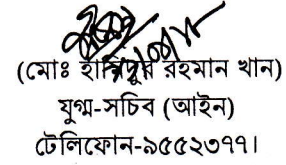 (মোঃ হাবিবুর রহমান খান)
যুগ্ম-সচিব (আইন)
টেলিফোন-৯৫৫২৩৭৭।